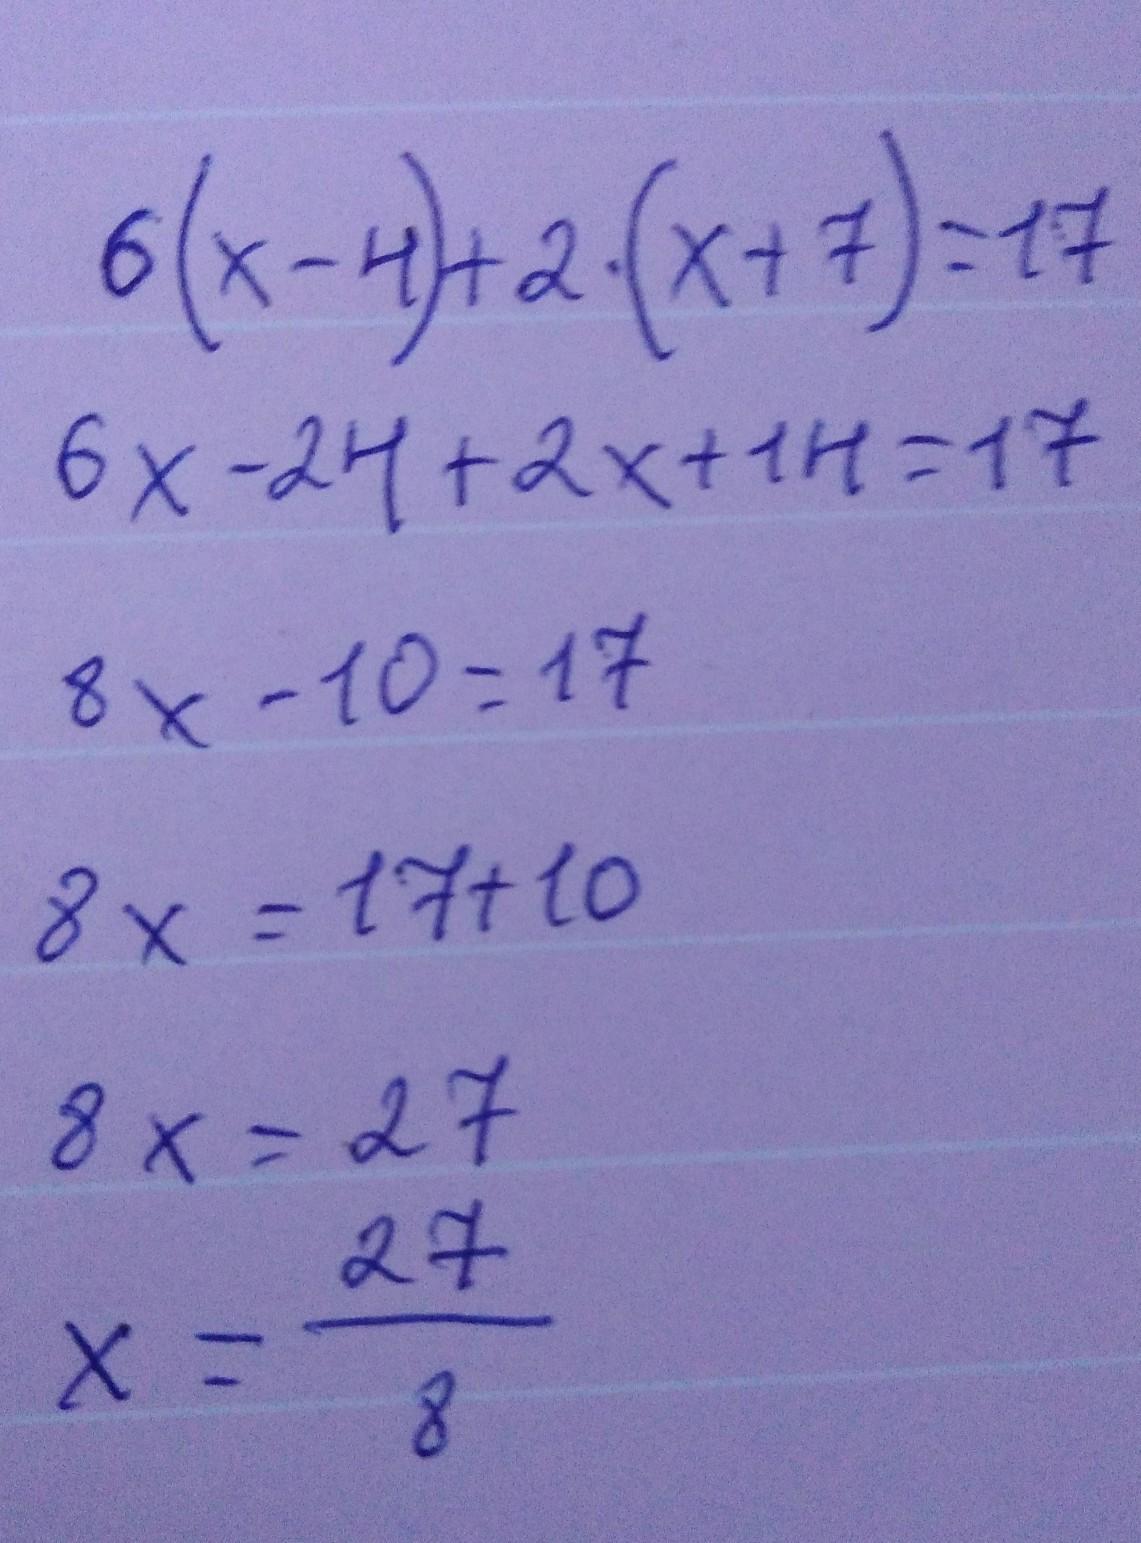 6(x-4)+2·(x+7)=17
6x-24+2x+14=17
8x-10=17
8x=17+10
8x=27
x=27/8